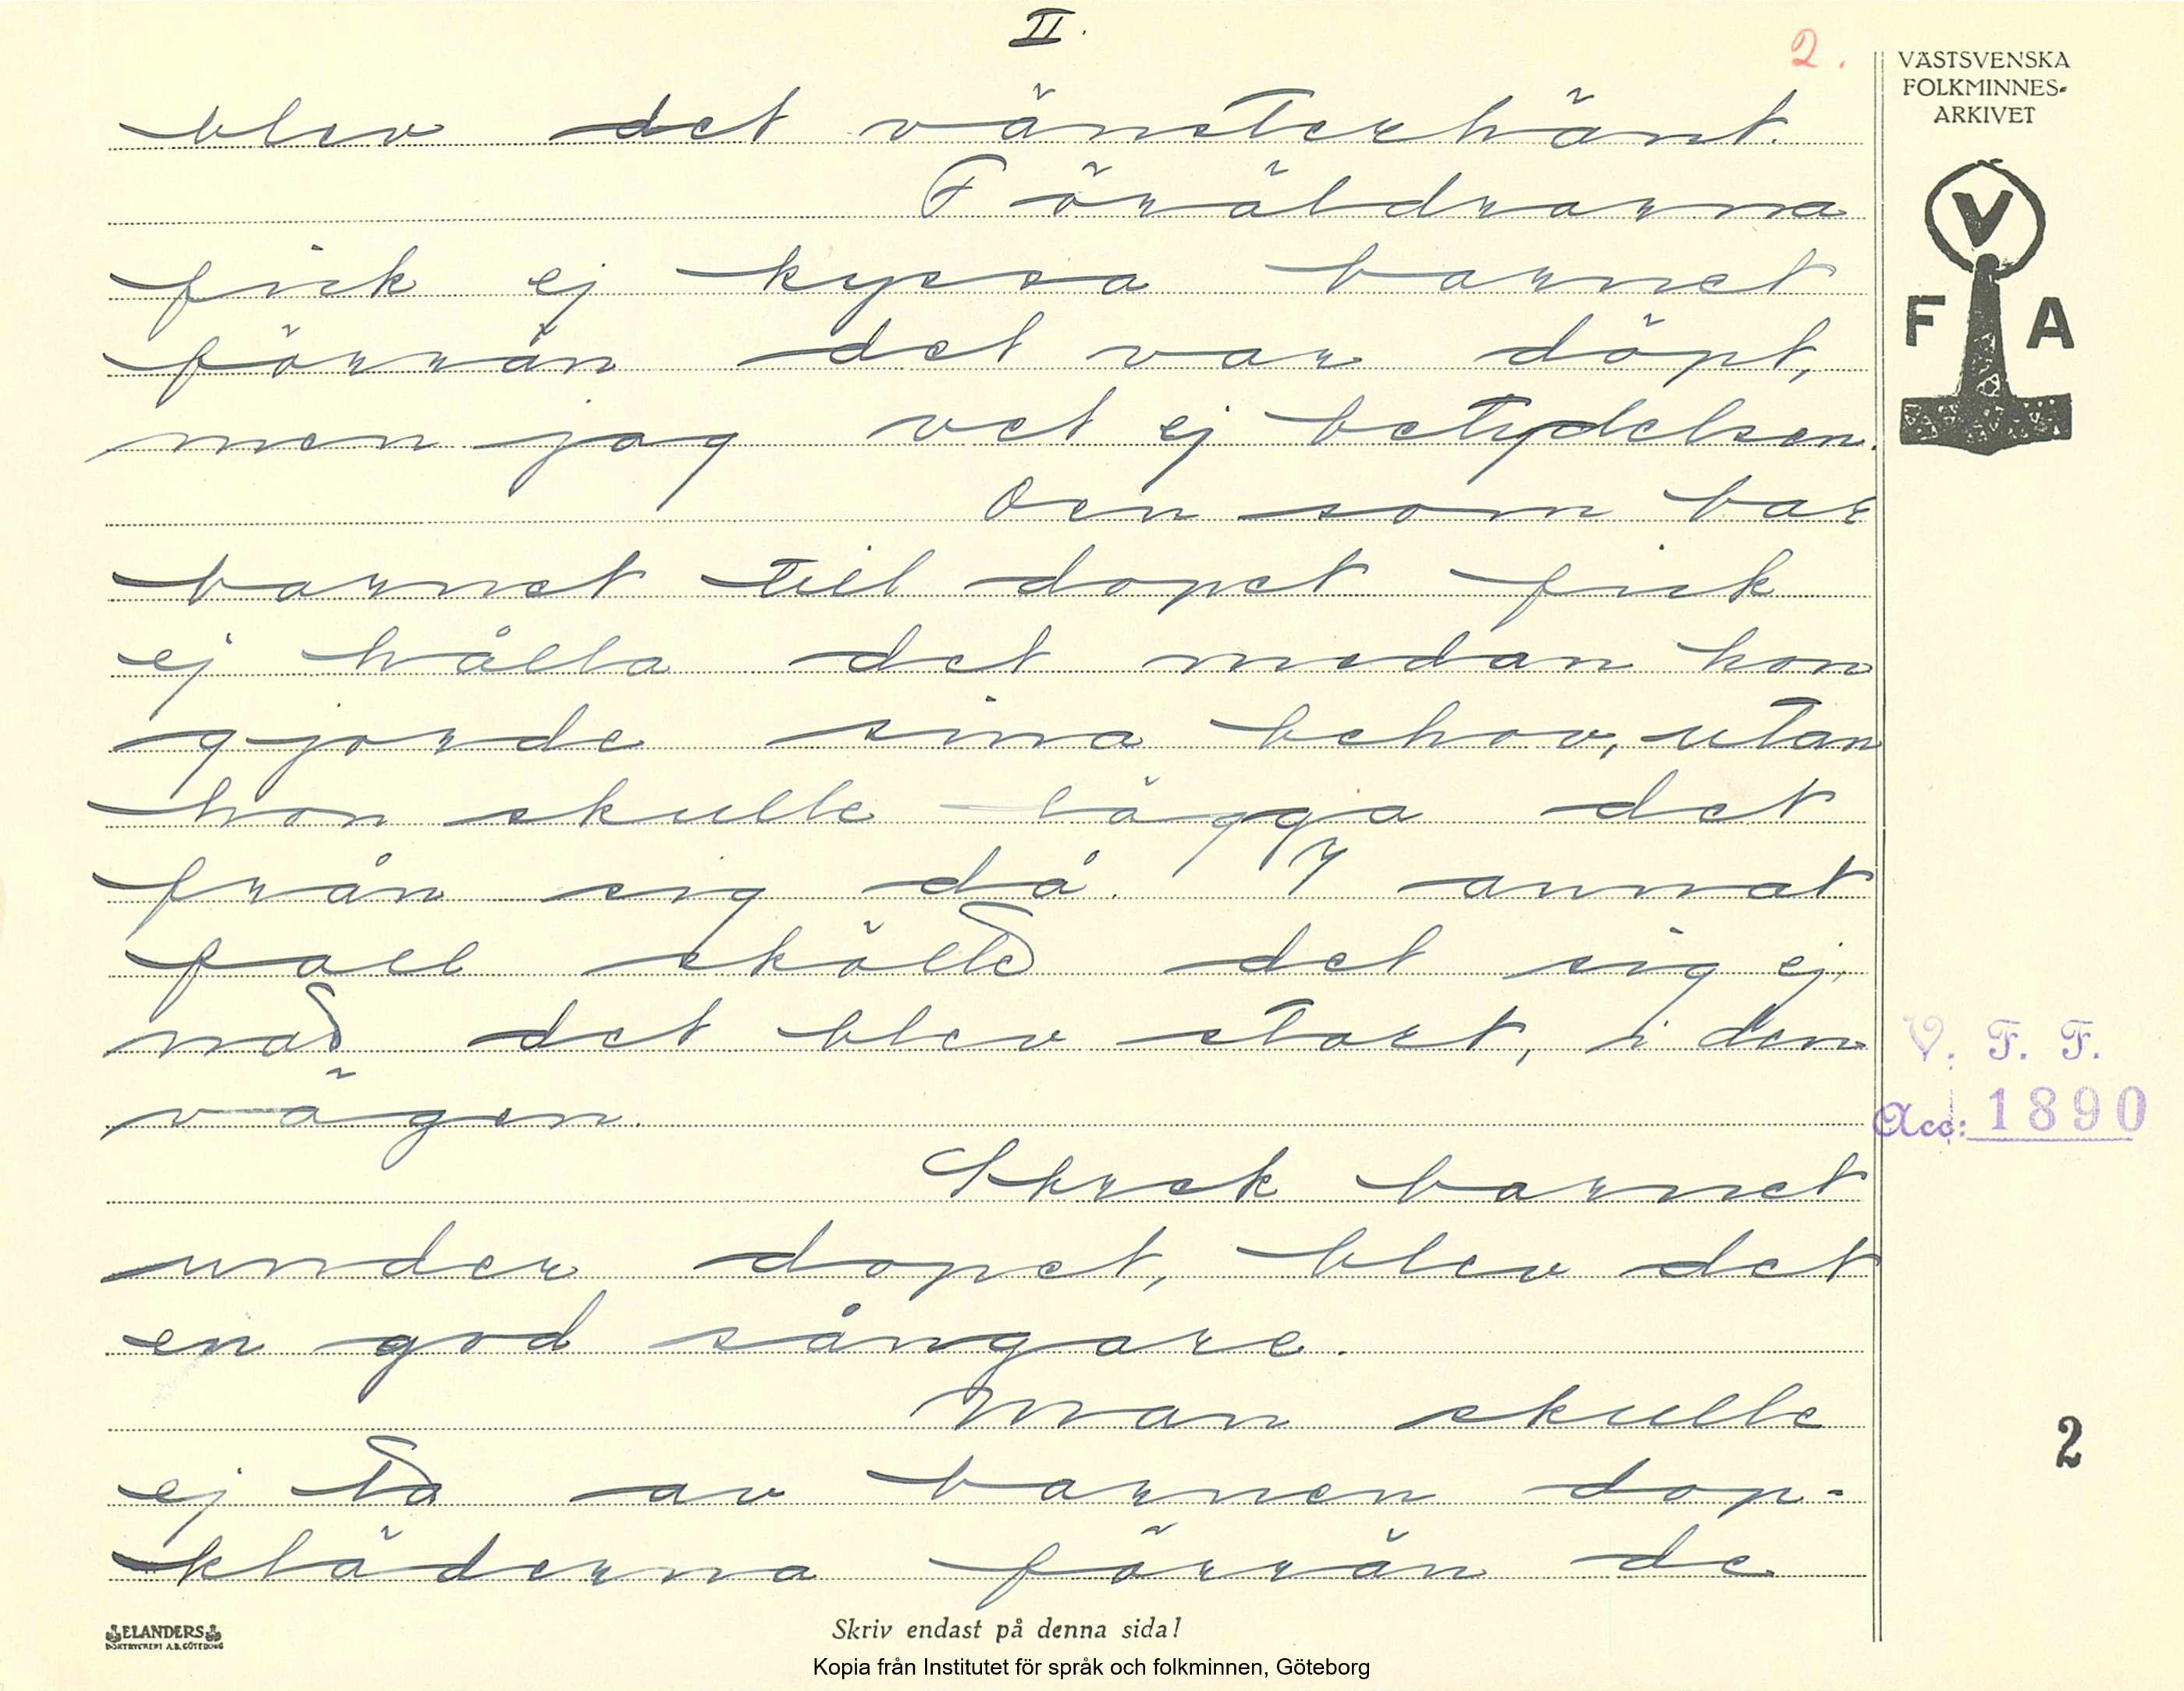 II.
2.
VÄSTSVENSKA
FOLKMINNES-
ARKIVET
V
F A
blev det vänsterhänt.
Föräldrarna
fick ej kyssa barnet
förrän det var döpt,
men jag vet ej betydelsen.
Den som bar
barnet till dopet fick
ej hålla det medan hon
gjorde sina behov, utan
hon skulle lägga det
från sig då. I annat
fall skötte det sig ej,
när det blev stort, i den
vägen.
Skrek barnet
under dopet, blev det
en god sångare.
Man skulle
ej ta av barnen dop-
kläderna förrän de
V. F. F.
Acc: 1890
2
ELANDERS
BOKTRYCKERI A.B. GÖTEBORG
Skriv endast på denna sida!
Kopia från Institutet för språk och folkminnen, Göteborg